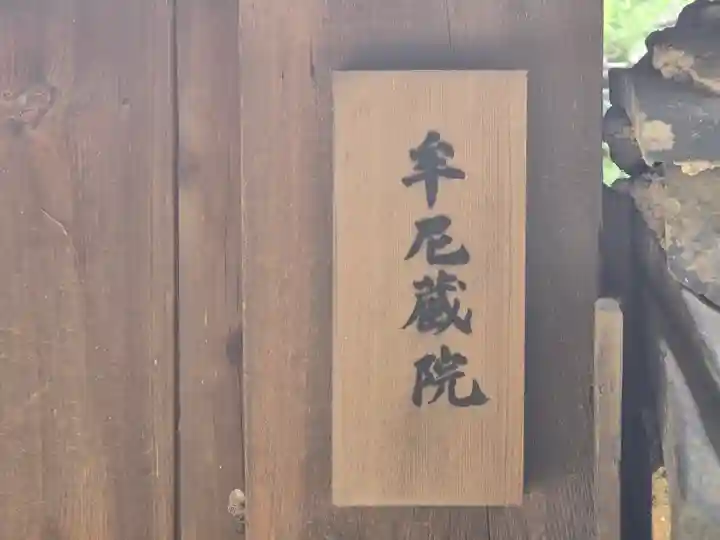 牟尼蔵院